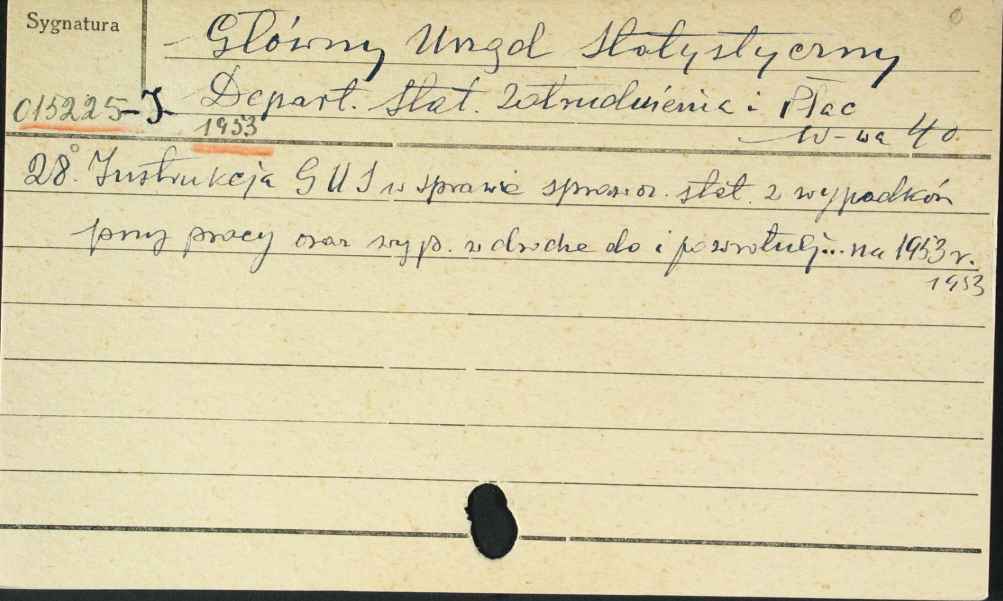 Sygnatura
Główny Urząd Statystyczny
015225-I
Depart. Stat. Zatrudnienia i Płac
1953
W-wa 4o.
28°. Instrukcja GUS w sprawie sprawoz. stat. z wypadków
przy pracy oraz wyp. w drodze do i z powrotu... na 1953 r.
1953